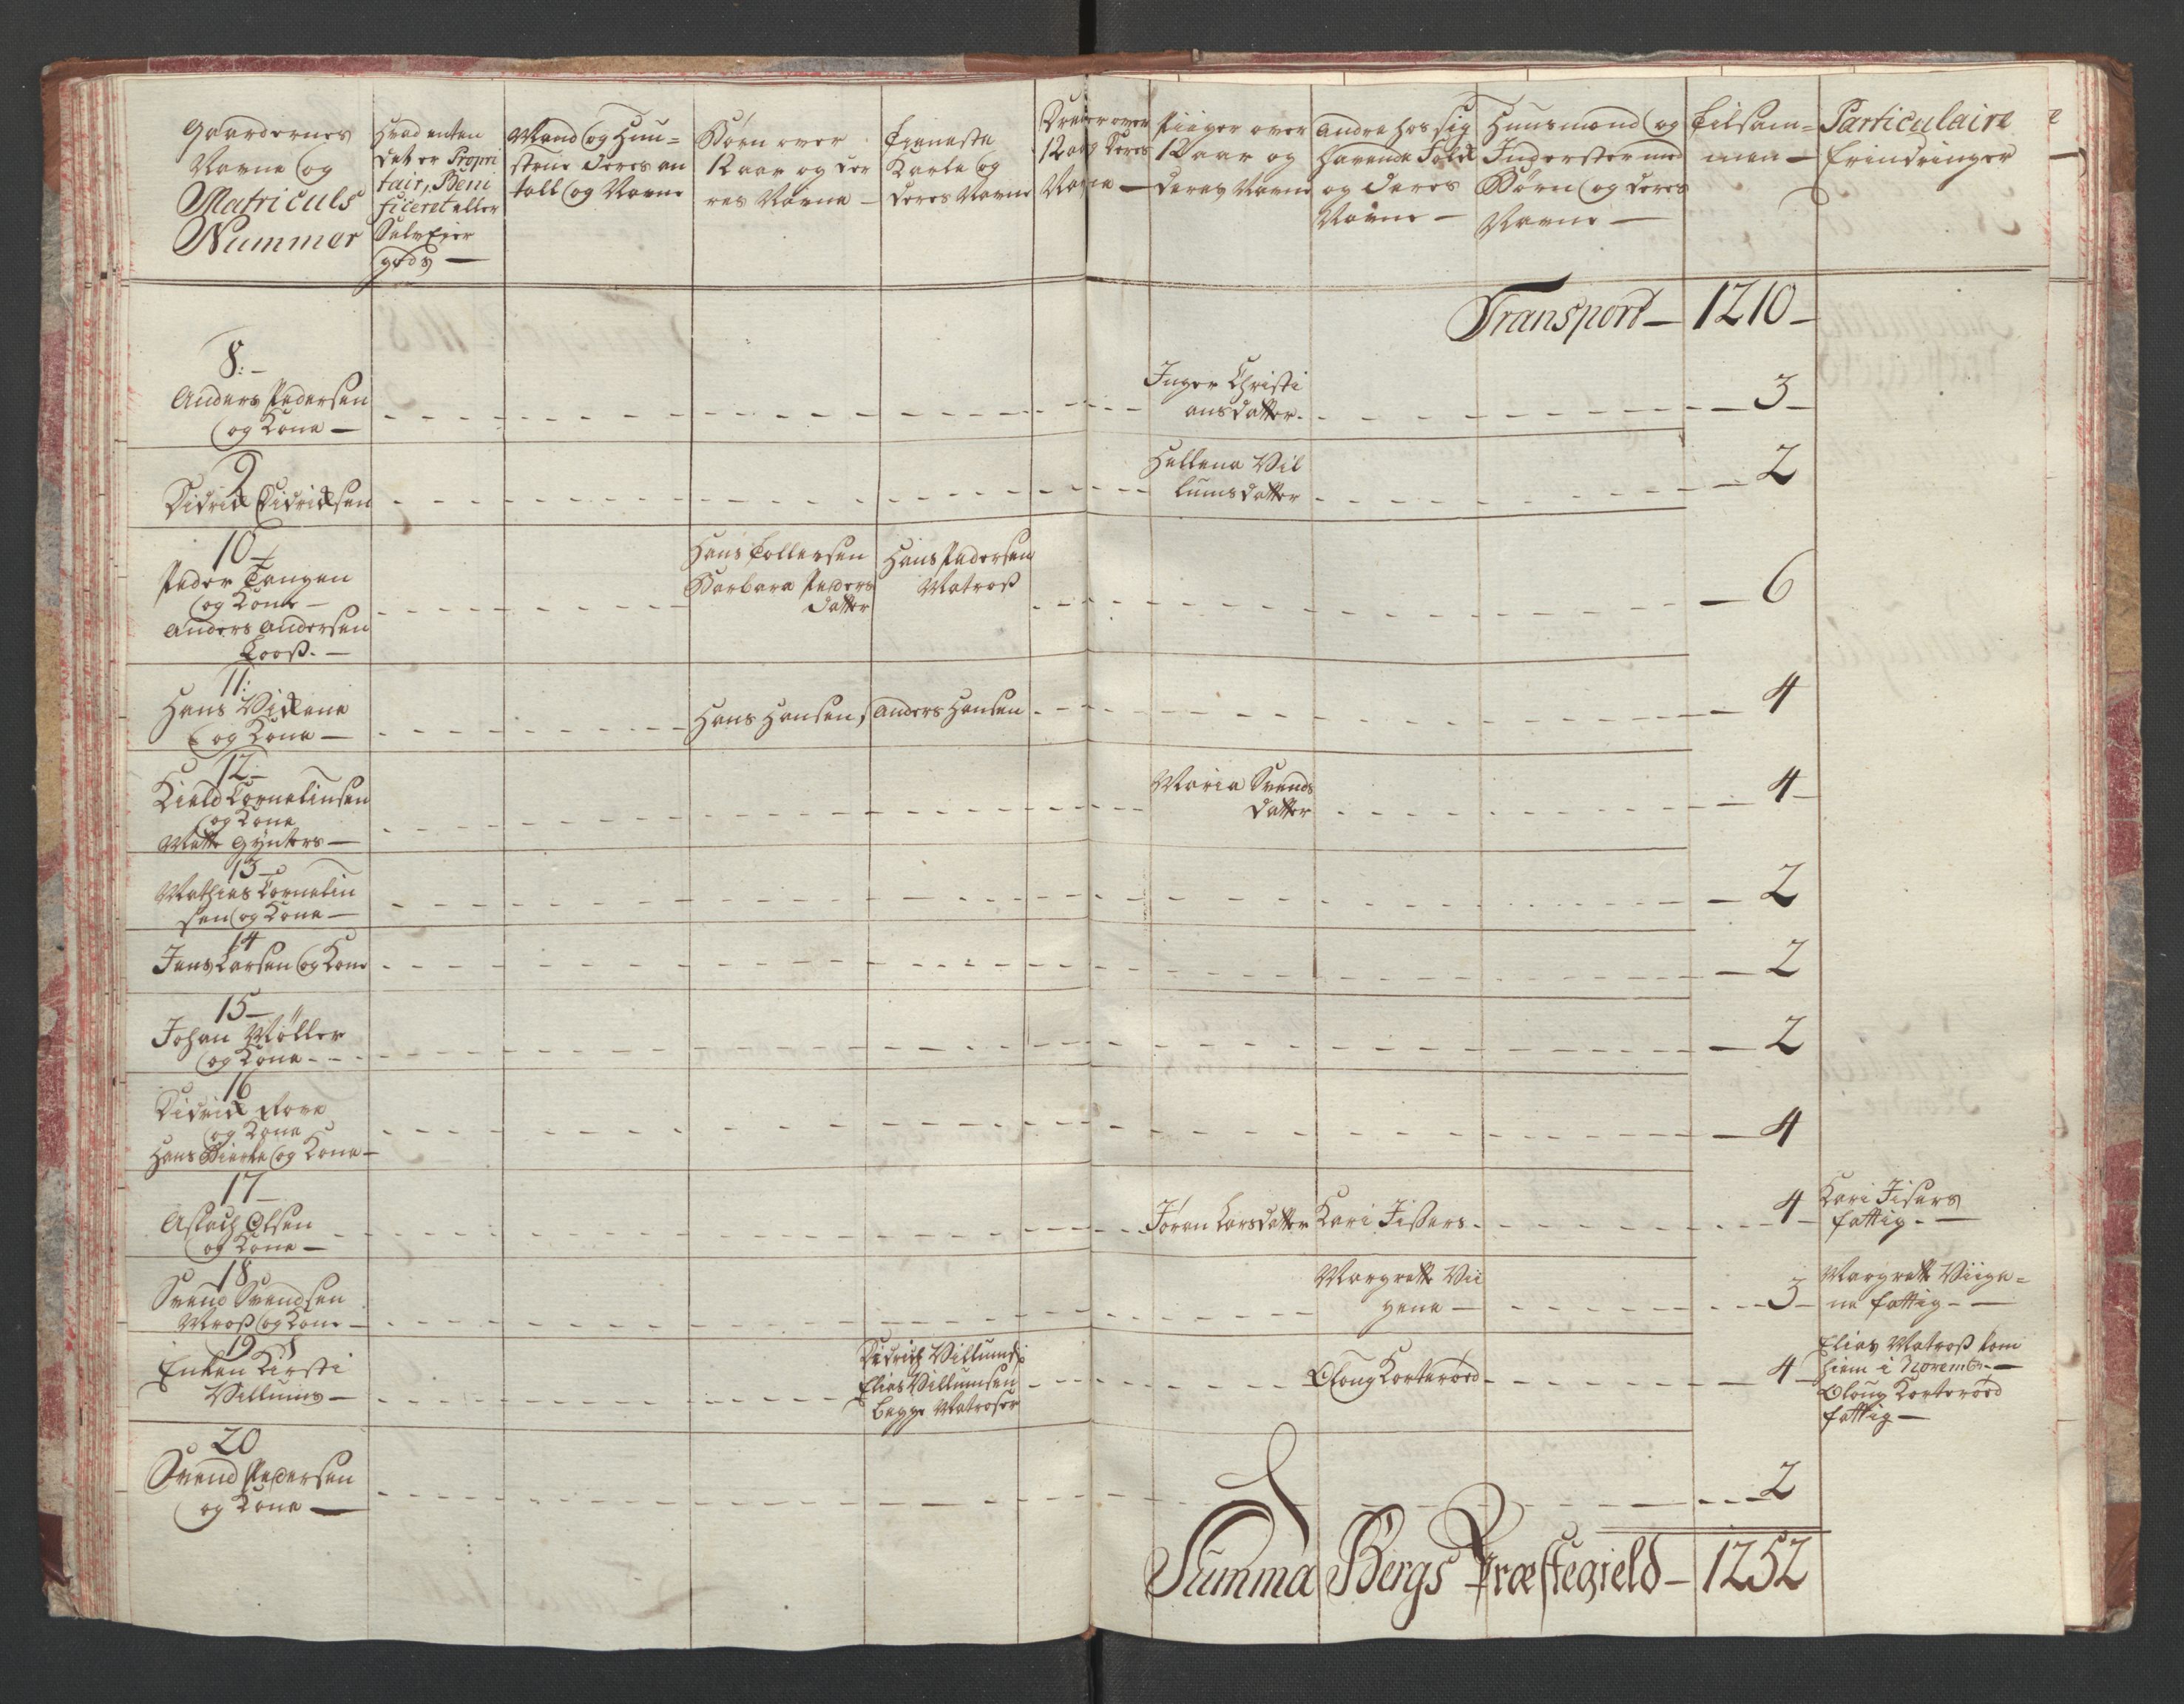 Gaardernes
Navne og
Matriculs
Nummer
Hvad enten
det er Propri
tair, Beni
ficeret eller
Selv Eyer
gods —
Mand og Huu=
strue deres an
tall og Navne
Børn over
12 aar og der
res Navne —
Tieneste
Karle og
deres Navne
Drenge over
12 aar og deres
Navne —
Piiger over
12 aar og
deres Navne
Andre hos sig
havende Folk
og deres
Navne —
Huusmænd og
Inderster med
Børn og deres
Navne —
Tilsam=
men —
Particulaire
Erindringer
Transport — 1210 —
8: —
Anders Pedersen
og Kone —
Inger Christi
ansdatter
3
9
Didrick Didricksen
Hellena Vil
lumsdatter
2
10 —
Peder Tangen
og Kone —
Anders Andersen
Looss. —
Hans Tollersen
Barbara Peders
datter
Hans Pedersen
Matross
6
11:
Hans Vickene
og Kone —
Hans Hansen,
Anders Hansen
4
12 —
Kield Cornelinsen
og Kone
Mette Gynters —
Maria Svends
datter
4
13 —
Mathias Cornelin
sen og Kone —
2
14
Jens Larsen og Kone
2
15 —
Johan Møller
og Kone
2
16
Didrick Rove
og Kone
Hans Bierke og Kone —
4
17 —
Aslach Olsen
og Kone —
Jøran Larsdatter
Kari Jissers
4
Kari Jisers
fattig —
18
Svend Svendsen
Mross og Kone —
Margrette Vii
gene —
3
Margrett Viige=
ne fattig —
19
Enken Kirsti
Villums —
Didrich Villums
Elias Villumsen
begge Matroser
Oloug Korterød
4
Elias Matross kom
hiem i Novembr —
Oloug Korterød
fattig —
20
Svend Pedersen
og Kone —
2
Summa Bergs Præstegield — 1252